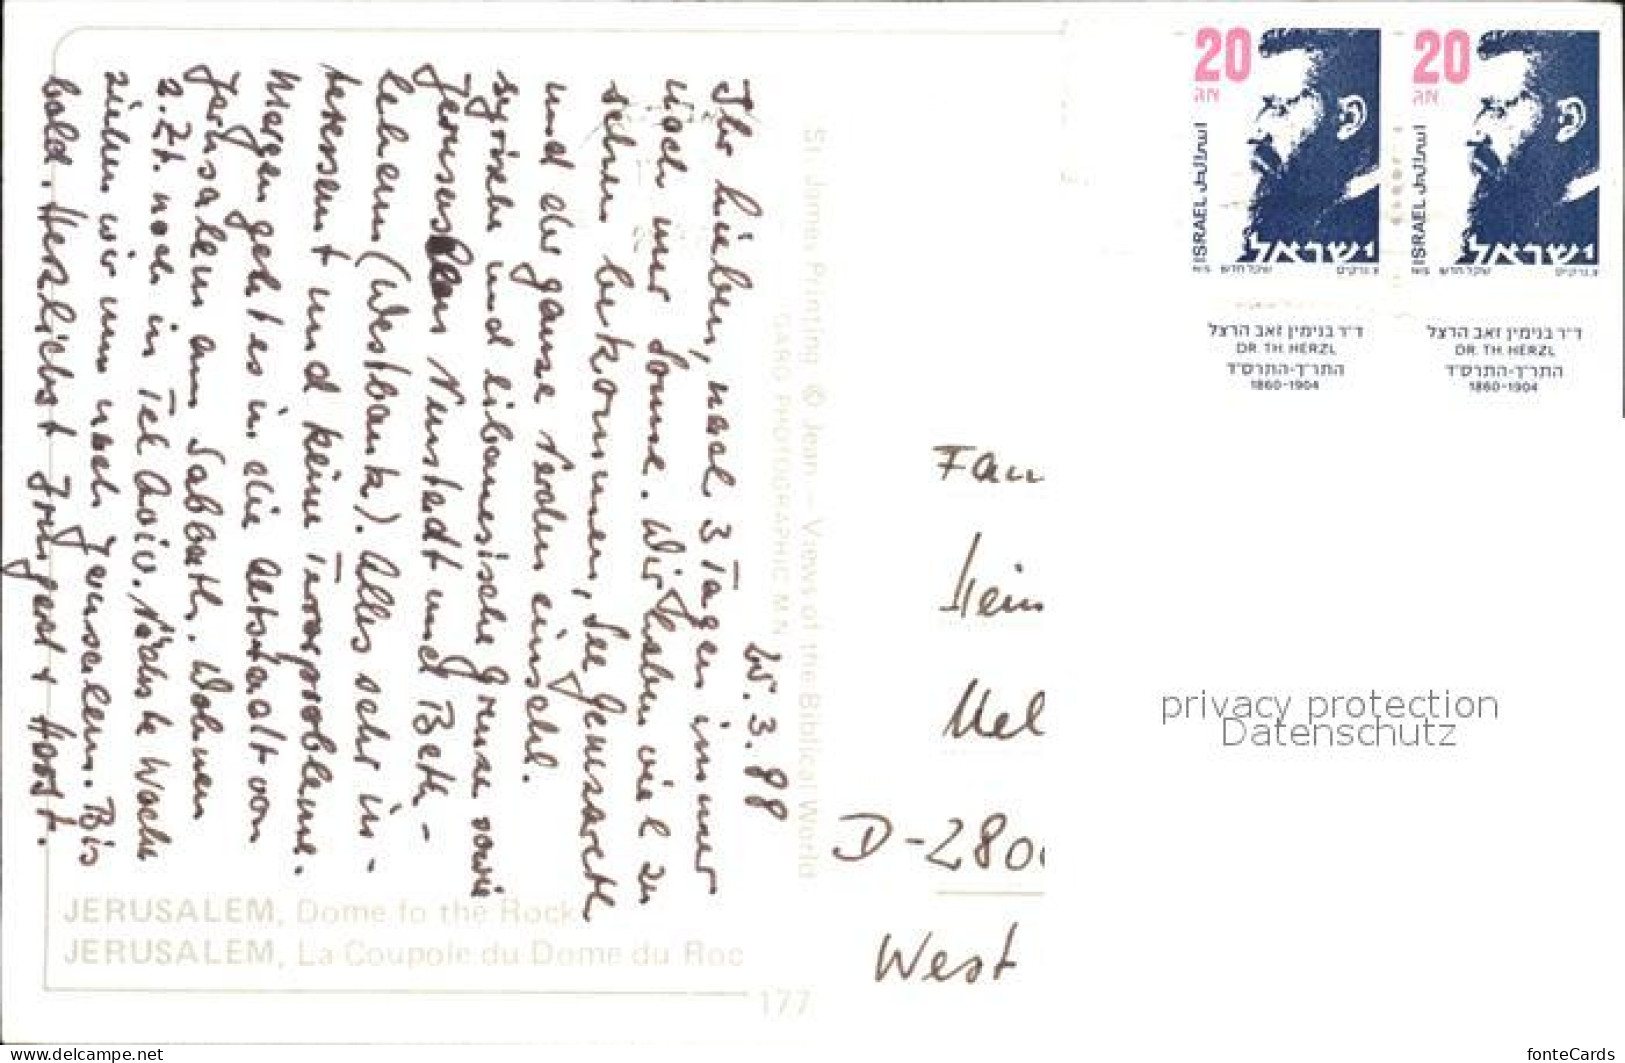 25.3.88
Ihr Lieben, nach 3 Tagen immer
noch nur Sonne. Wir haben viel zu
sehen bekommen, See Genezareth
und der ganze Norden einschl.
syrische und libanesische Grenze sowie
Jerusalem Neustadt und Beth-
lehem (Westbank). Alles sehr in-
teressant und keine Terrorprobleme.
Morgen geht es in die Altstadt von
Jerusalem am Sabbath. Wohnen
z.Zt. noch in Tel Aviv. Nächste Woche
ziehen wir um nach Jerusalem. Bis
bald. Herzlichst Irmgard + Horst.
JERUSALEM, Dome fo the Rock
JERUSALEM, La Coupole du Dome du Roc
177
St. James Printing © Jean - Views of the Biblical World
GARO PHOTOGRAPHIE M.N.
20
אג
ISRAEL اسرائيل
ישראל
NIS שקל חדש
ד״ר בנימין זאב הרצל
DR. TH. HERZL
התר״ך-התרס״ד
1860-1904
20
אג
ISRAEL اسرائيل
ישראל
NIS שקל חדש
ד״ר בנימין זאב הרצל
DR. TH. HERZL
התר״ך-התרס״ד
1860-1904
Fam
Hein
Mel
D-280
West
privacy protection
Datenschutz
www.delcampe.net
fonteCards